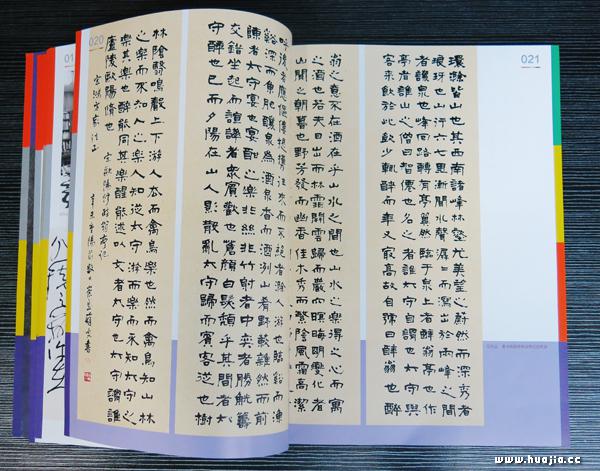 021
環滁皆山也其西南諸峰林壑尤美望之蔚然而深秀者
琅玡也山行六七里漸聞水聲潺潺而瀉出於兩峰之間
者釀泉也峰回路轉有亭翼然臨于泉上者醉翁亭也作
亭者誰山之僧曰智僊也名之者誰太守自謂也太守與
客來飲於此飲少輒醉而年又最高故自號曰醉翁也醉
翁之意不在酒在乎山水之間也山水之樂得之心而寓
之酒也若夫日出而林霏開雲歸而巖穴暝晦明變化者
山間之朝暮也野芳發而幽香佳木秀而繁陰風霜高潔
020
呼後者應傴僂提攜往來而不絕者滁人游也臨谿而漁
谿深而魚肥釀泉為酒泉香而酒洌山肴野蔌雜然而前
陳者太守宴也宴酣之樂非絲非竹射者中弈者勝觥籌
交錯坐起而諠譁者眾賓歡也蒼顏白髮頹乎其間者太
守醉也已而夕陽在山人影散亂太守歸而賓客從也樹
林陰翳鳴聲上下游人去而禽鳥樂也然而禽鳥知山林
之樂而不知人之樂人知從太守游而樂而不知太守之
樂其樂也醉能同其樂醒能述以文者太守也太守謂誰
廬陵歐陽脩也
01
www.huajia.cc